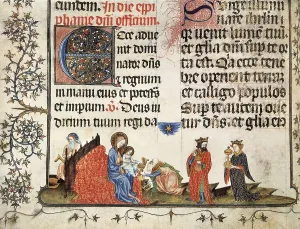 eundem.
In die epi
phanie dni officium.
Ecce advē
nit domi
nator dns
et regnum
in manu eius et potestas
et imperium. V. Deus iu
dicium tuum regi da
Surge illumi
quia venit lumē tuū
et glia dni sup te orta
est. Quia ecce tene
bre operient terrā
et caligo populos
Sup te autem orie
tur dns et glia eī